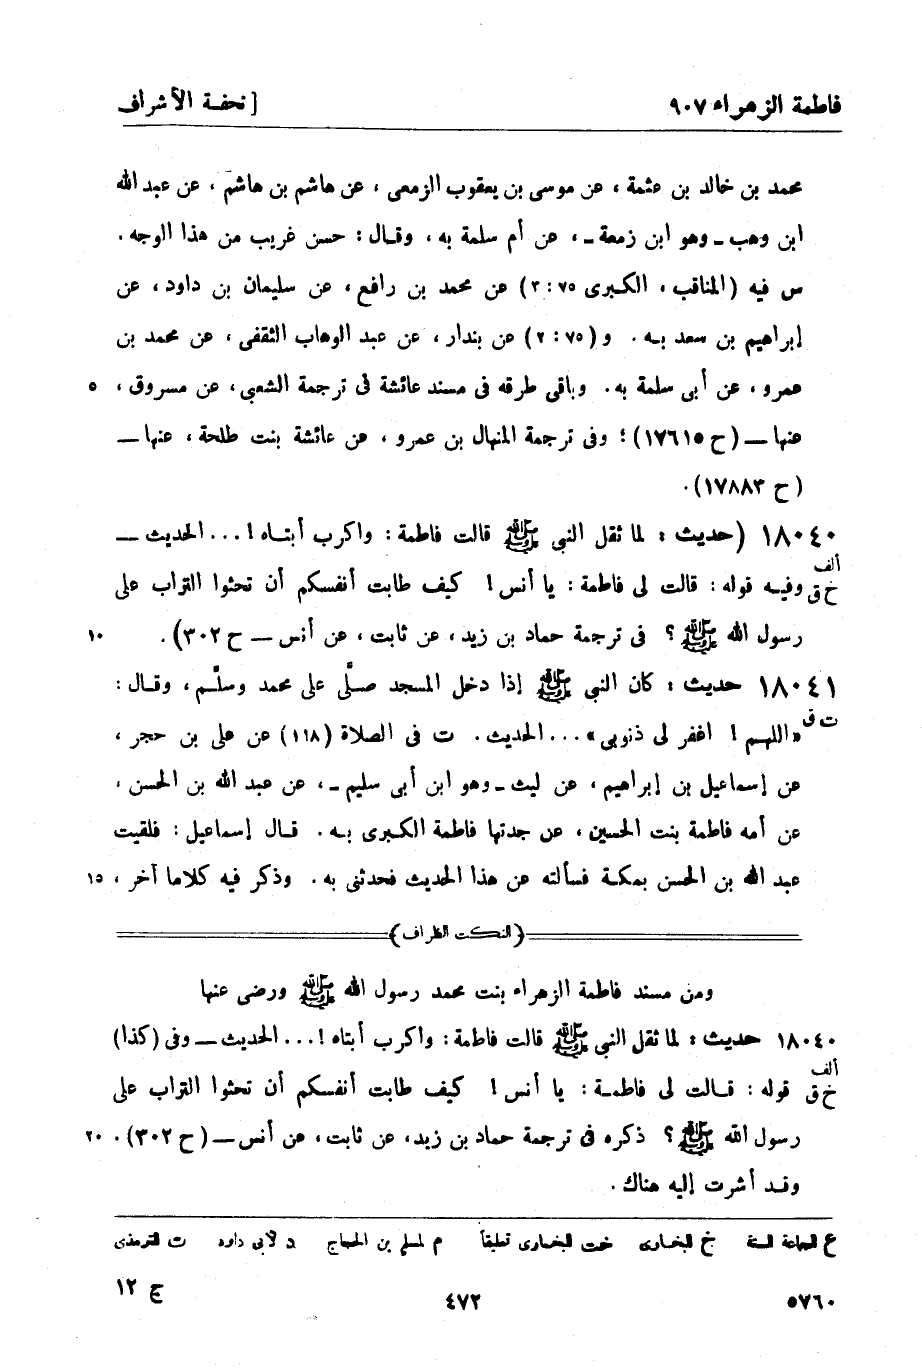 فاطمة الزهراء ٩٠٧ [ تحفة الأشراف
محمد بن خالد بن عثمة ، عن موسى بن يعقوب الزمعى ، عن هاشم بن هاشم ، عن عبد الله
ابن وهب ــ وهو ابن زمعة ــ ، عن أم سلمة به ، وقال : حسن غريب من هذا الوجه .
س فيه (المناقب ، الكبرى ٧٥ : ٣) عن محمد بن رافع ، عن سليمان بن داود ، عن
إبراهيم بن سعد به . و (٧٥ : ٢) عن بندار ، عن عبد الوهاب الثقفى ، عن محمد بن
عمرو ، عن أبى سلمة به . وباقى طرقه فى مسند عائشة فى ترجمة الشعبى ، عن مسروق ، ٥
عنها ــ (ح ١٧٦١٥) ؛ وفى ترجمة المنهال بن عمرو ، عن عائشة بنت طلحة ، عنها ــ
(ح ١٧٨٨٣) .
١٨٠٤٠ (حديث : لما ثقل النبى ﷺ قالت فاطمة : واكرب أبتاه ! ... الحديث ــ
ألف
خ ق وفيه قوله : قالت لى فاطمة : يا أنس ! كيف طابت أنفسكم أن تحثوا التراب على
رسول الله ﷺ ؟ فى ترجمة حماد بن زيد ، عن ثابت ، عن أنس ــ ح ٣٠٢) . ١٠
١٨٠٤١ حديث : كان النبى ﷺ إذا دخل المسجد صلَّى على محمد وسلَّم ، وقال :
ت ق «اللهم ! اغفر لى ذنوبى» ... الحديث . ت فى الصلاة (١١٨) عن على بن حجر ،
عن إسماعيل بن إبراهيم ، عن ليث ــ وهو ابن أبى سليم ــ ، عن عبد الله بن الحسن ،
عن أمه فاطمة بنت الحسين ، عن جدتها فاطمة الكبرى به . قال إسماعيل : فلقيت
عبد الله بن الحسن بمكة فسألته عن هذا الحديث فحدثنى به . وذكر فيه كلاما آخر ، ١٥
(النكت الظراف)
ومن مسند فاطمة الزهراء بنت محمد رسول الله ﷺ ورضى عنها
١٨٠٤٠ حديث : لما ثقل النبى ﷺ قالت فاطمة : واكرب أبتاه ! ... الحديث ــ وفى (كذا)
ألف
خ ق قوله : قالت لى فاطمة : يا أنس ! كيف طابت أنفسكم أن تحثوا التراب على
رسول الله ﷺ ؟ ذكره فى ترجمة حماد بن زيد ، عن ثابت ، عن أنس ــ (ح ٣٠٢) . ٢٠
وقد أشرت إليه هناك .
ع للجماعة الستة خ للبخارى خت للبخارى تعليقاً م لمسلم بن الحجاج د لأبى داود ت للترمذى
٥٧٦٠ ٤٧٢ ج ١٢